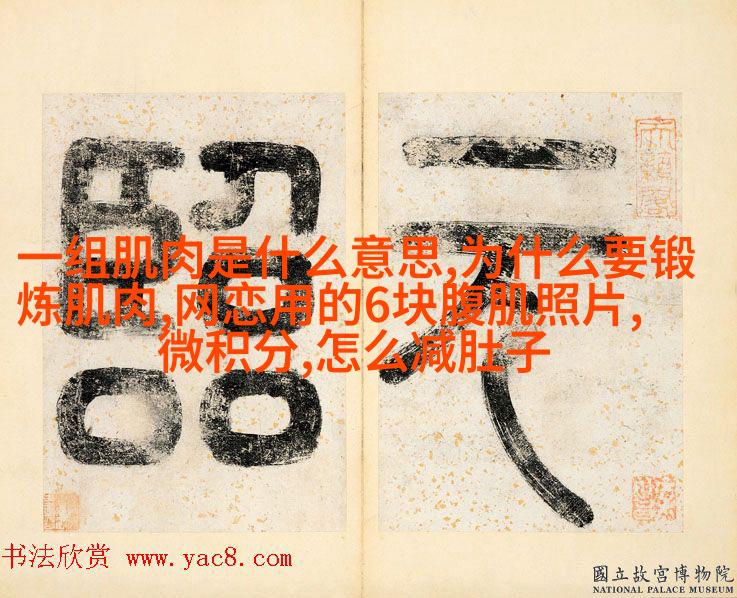 一组肌肉是什么意思,为什么要锻
炼肌肉,网恋用的6块腹肌照片,
微积分,怎么减肚子
书法欣赏 www.yac8.com
國立故宮博物院
NATIONAL PALACE MUSEUM